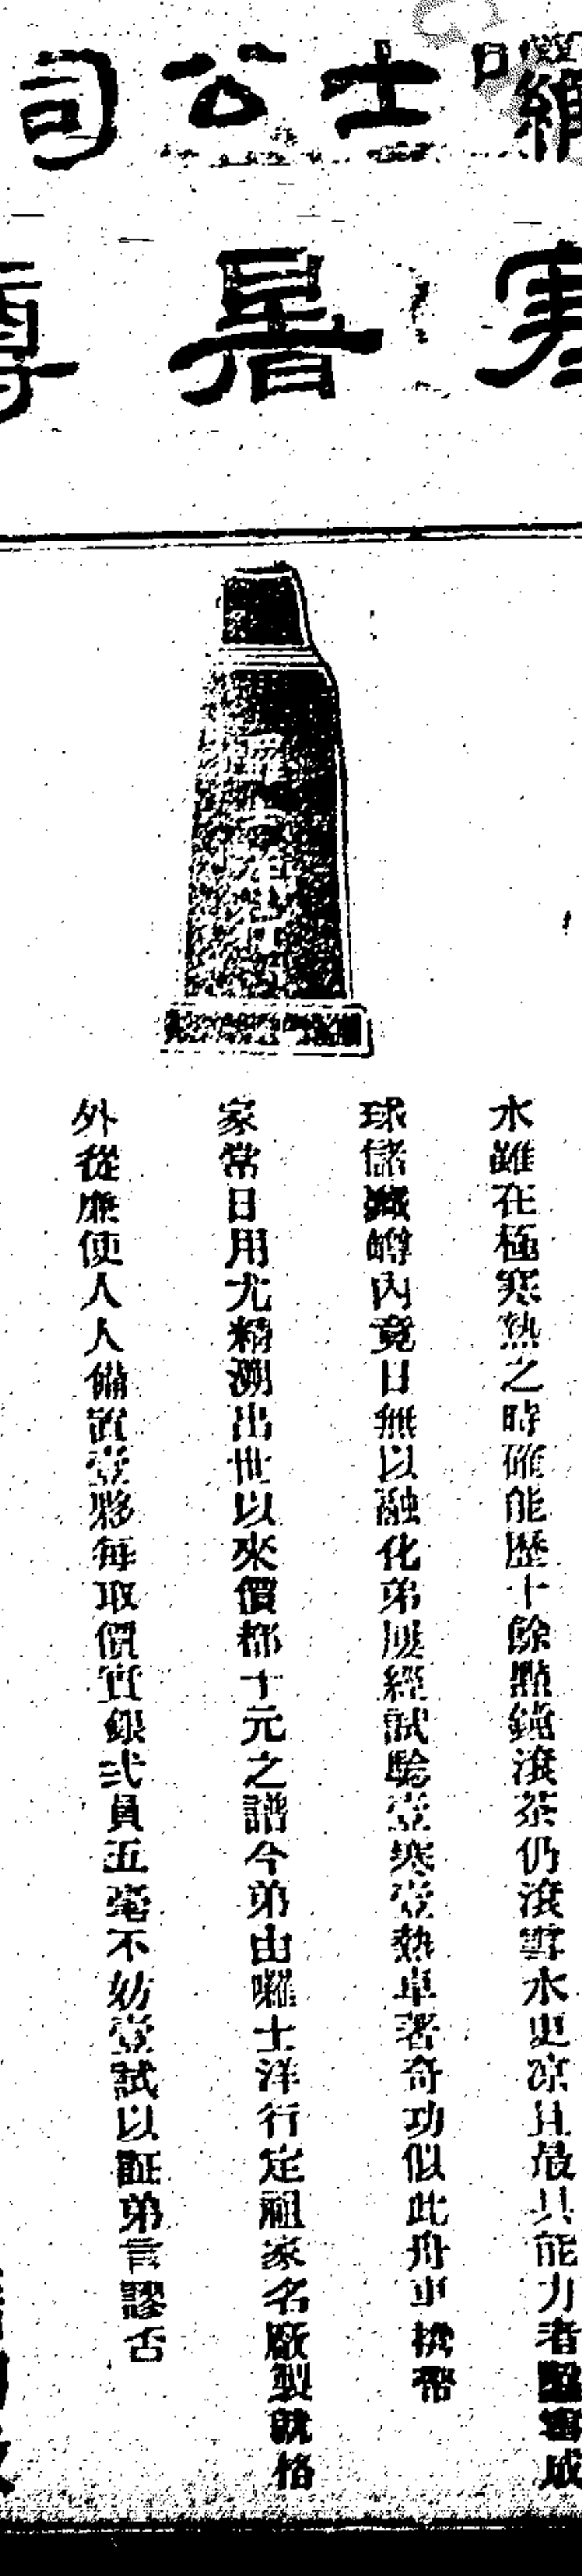 囉士公司
寒暑樽
囉士洋行
水雖在極寒熱之時確能歷十餘點鐘滾茶仍滾雪水更凉且最具能力者成
球儲藏罇內竟日無以融化弟屢經試驗壹寒壹熱卓著奇功似此舟車携帶
家常日用尤精溯出世以來價都十元之譜今弟由囉士洋行定祖家名廠製就格
外從廉使人人備置壹夥每取價實銀弍員五毫不妨壹試以証弟言謬否